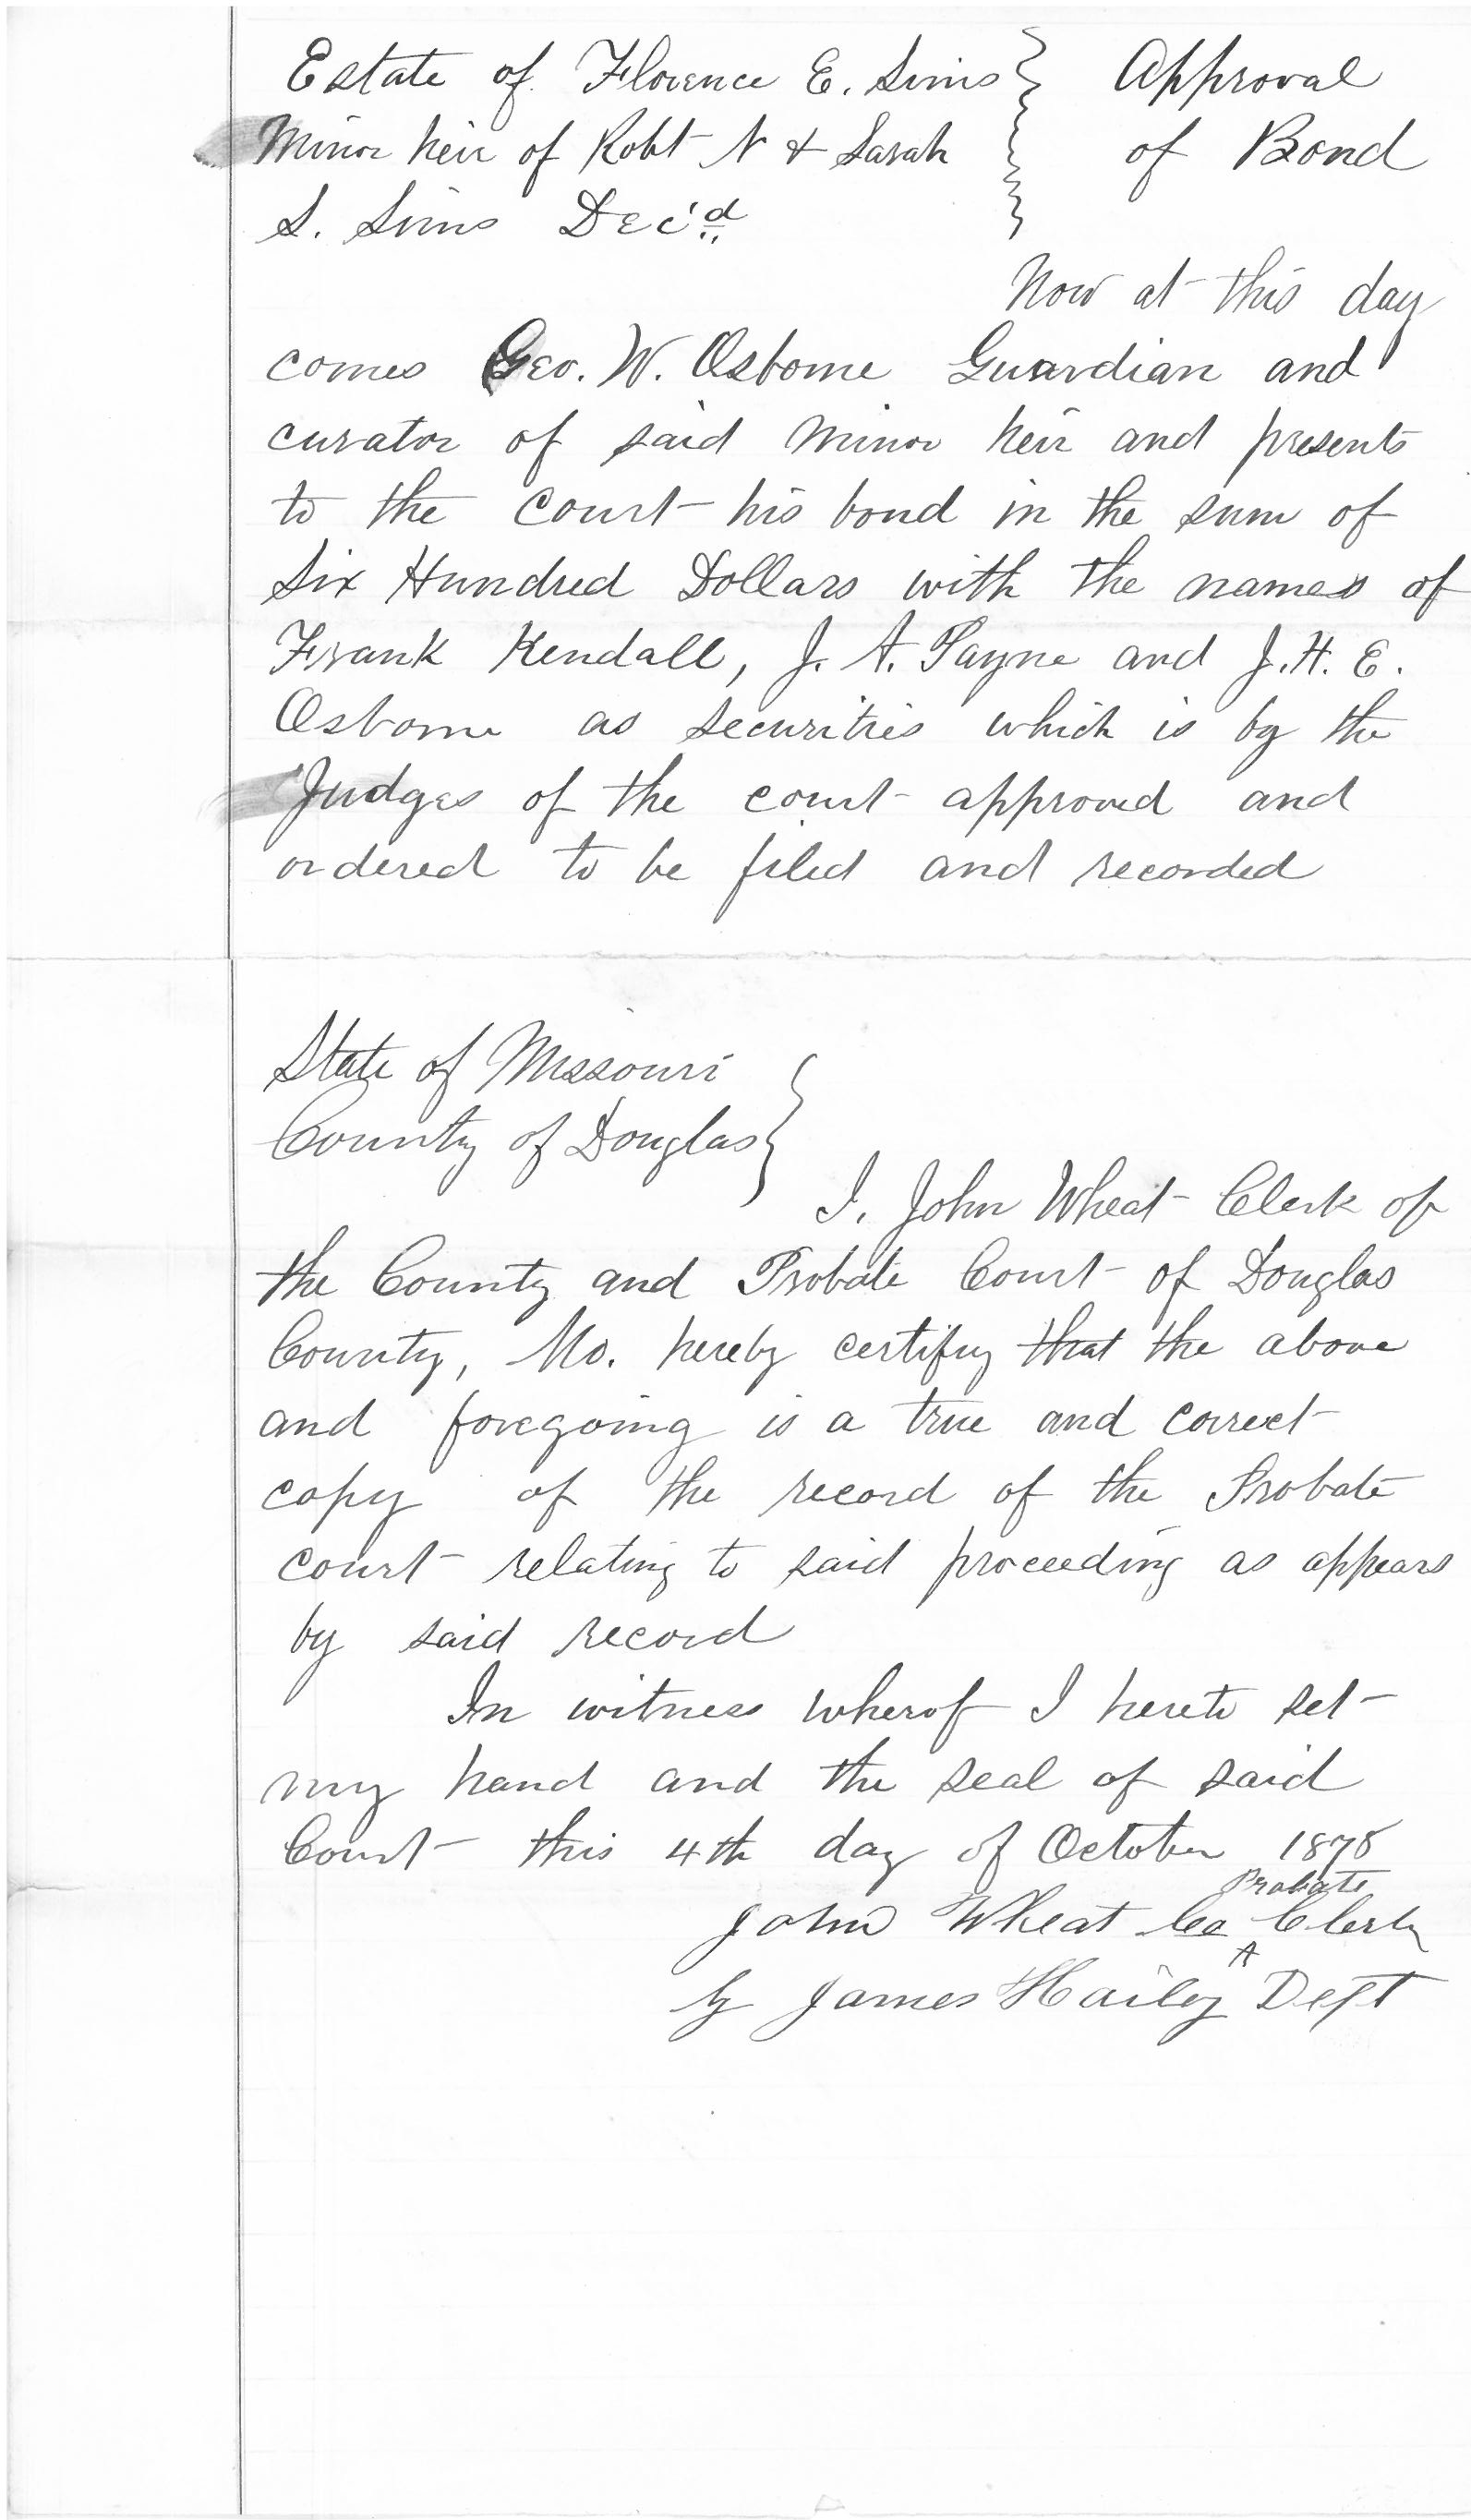 Estate of Florence E. Sims } Approval
Minor heir of Robt N & Sarah } of Bond
S. Sims Dec'd
Now at this day
comes Geo. W. Osborne Guardian and
curator of said minor heir and presents
to the court his bond in the sum of
Six Hundred Dollars with the names of
Frank Kendall, J. A. Payne and J. H. E.
Osborne as securities which is by the
Judges of the court approved and
ordered to be filed and recorded
State of Missouri }
County of Douglas }
I, John Wheat Clerk of
the County and Probate Court of Douglas
County, Mo. hereby certify that the above
and foregoing is a true and correct
copy of the record of the Probate
court relating to said proceeding as appears
by said record
In witness wherof I hereto set
my hand and the seal of said
Court this 4th day of October 1878
Probate
John Wheat Co ^ Clerk
by James Hailey Dept